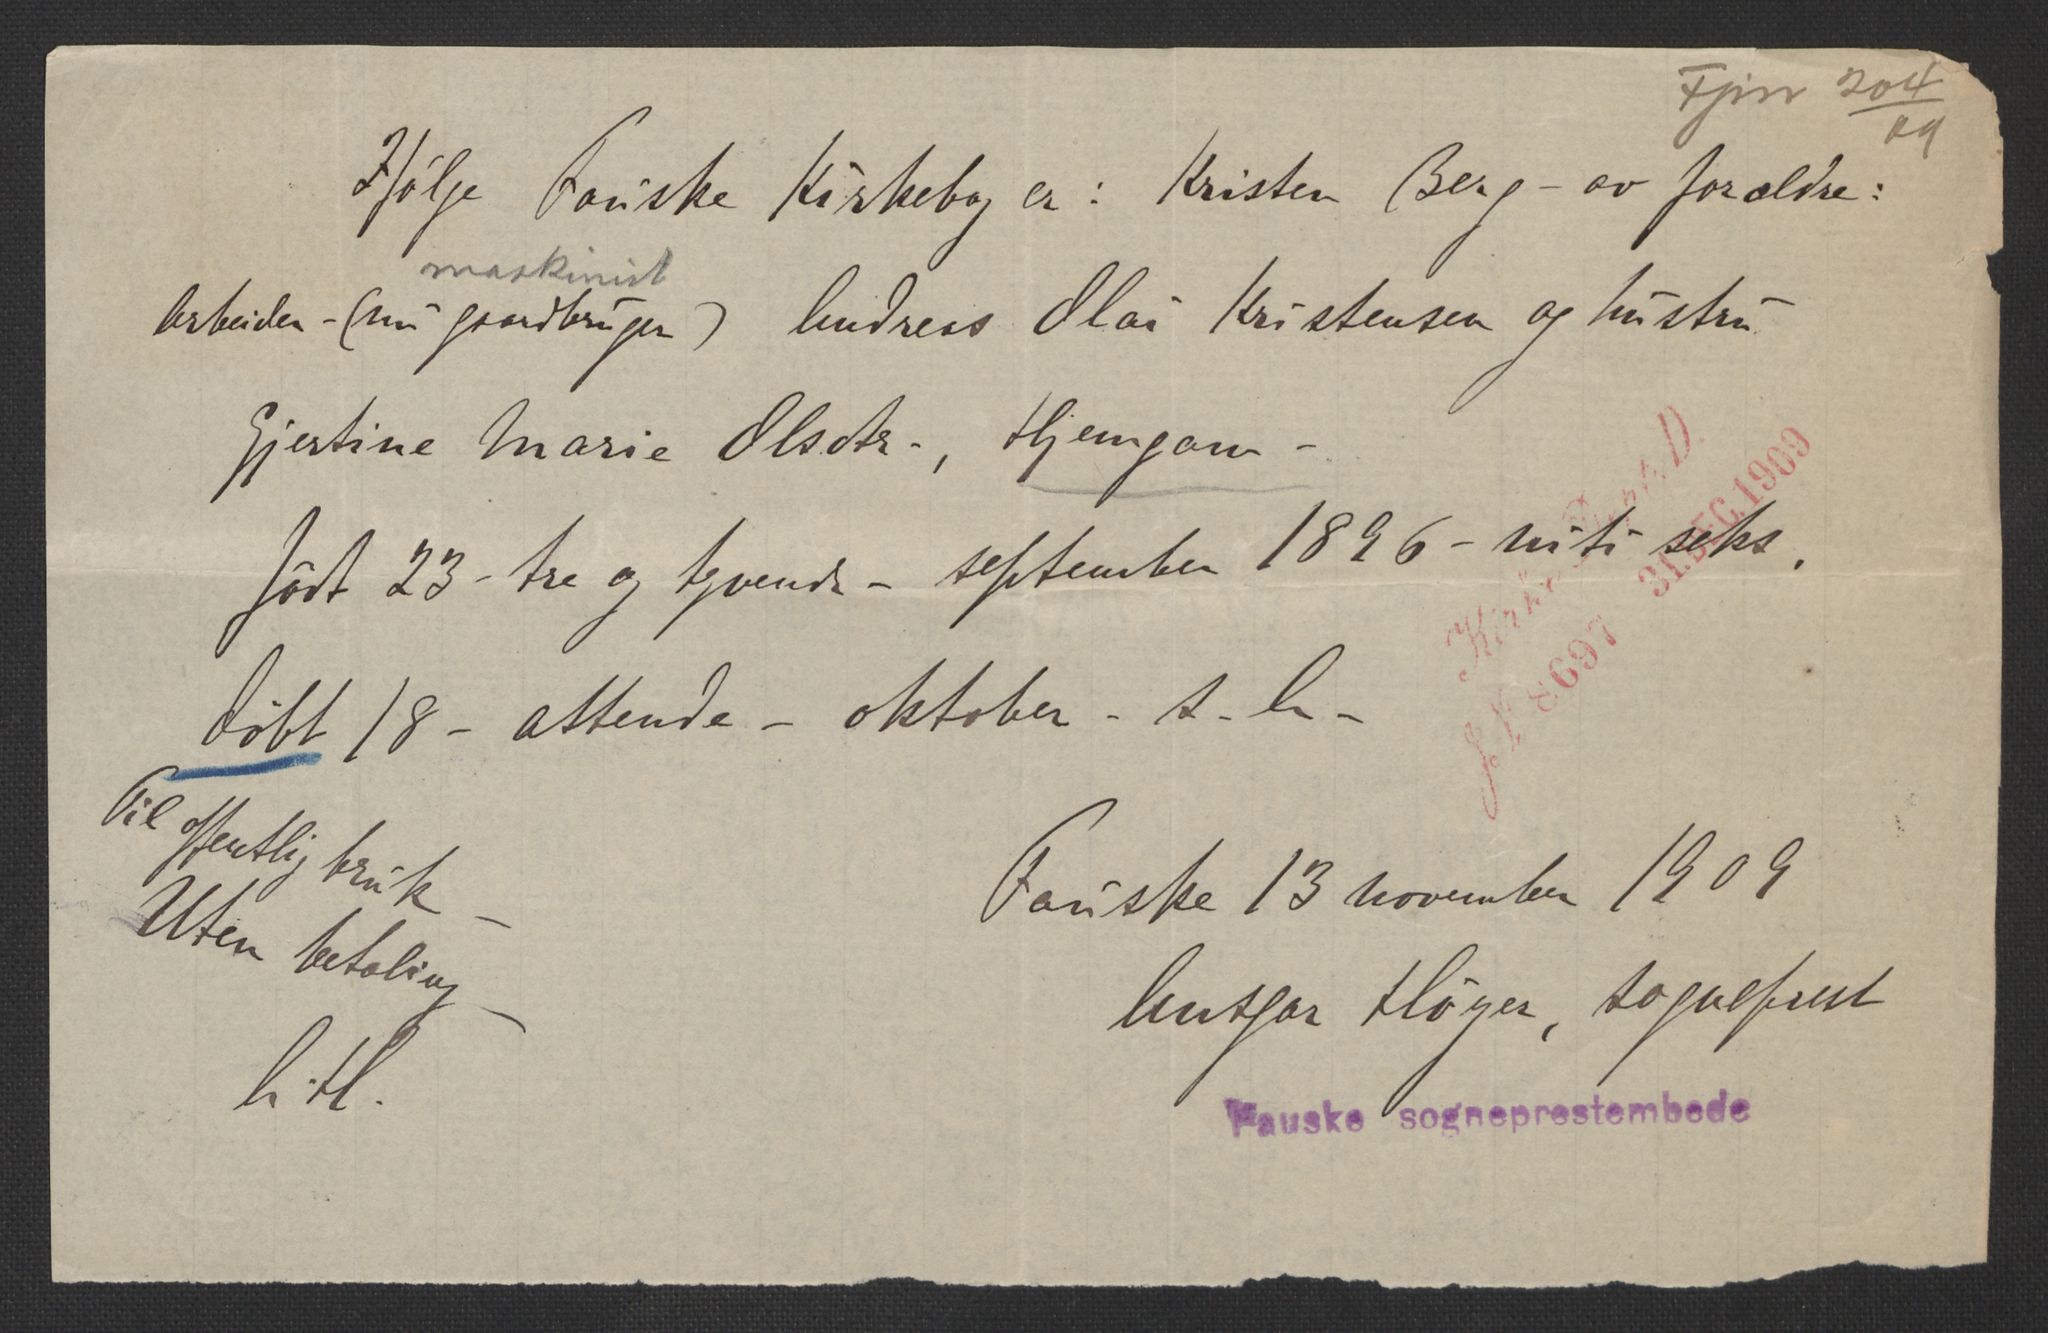 Fjnr 204/09
Ifølge Fauske Kirkebog er: Kristen Berg - av forældre:
maskinist
Arbeider - (nu gaardbruger) Andreas Olai Kristensen og hustru
Gjertine Marie Olsdtr-, Hjemgam -
født 23 - tre og tyvende - september 1896 - nitiseks.
døbt 18 - attende - oktober - s. A -
Kirke Dept. D.
31. DEC. 1909
J. № 8697
Til offentlig bruk -
Uten betaling -
A. H.
Fauske 13 november 1909
Ansgar Höyer, sogneprest
Fauske sogneprestembede